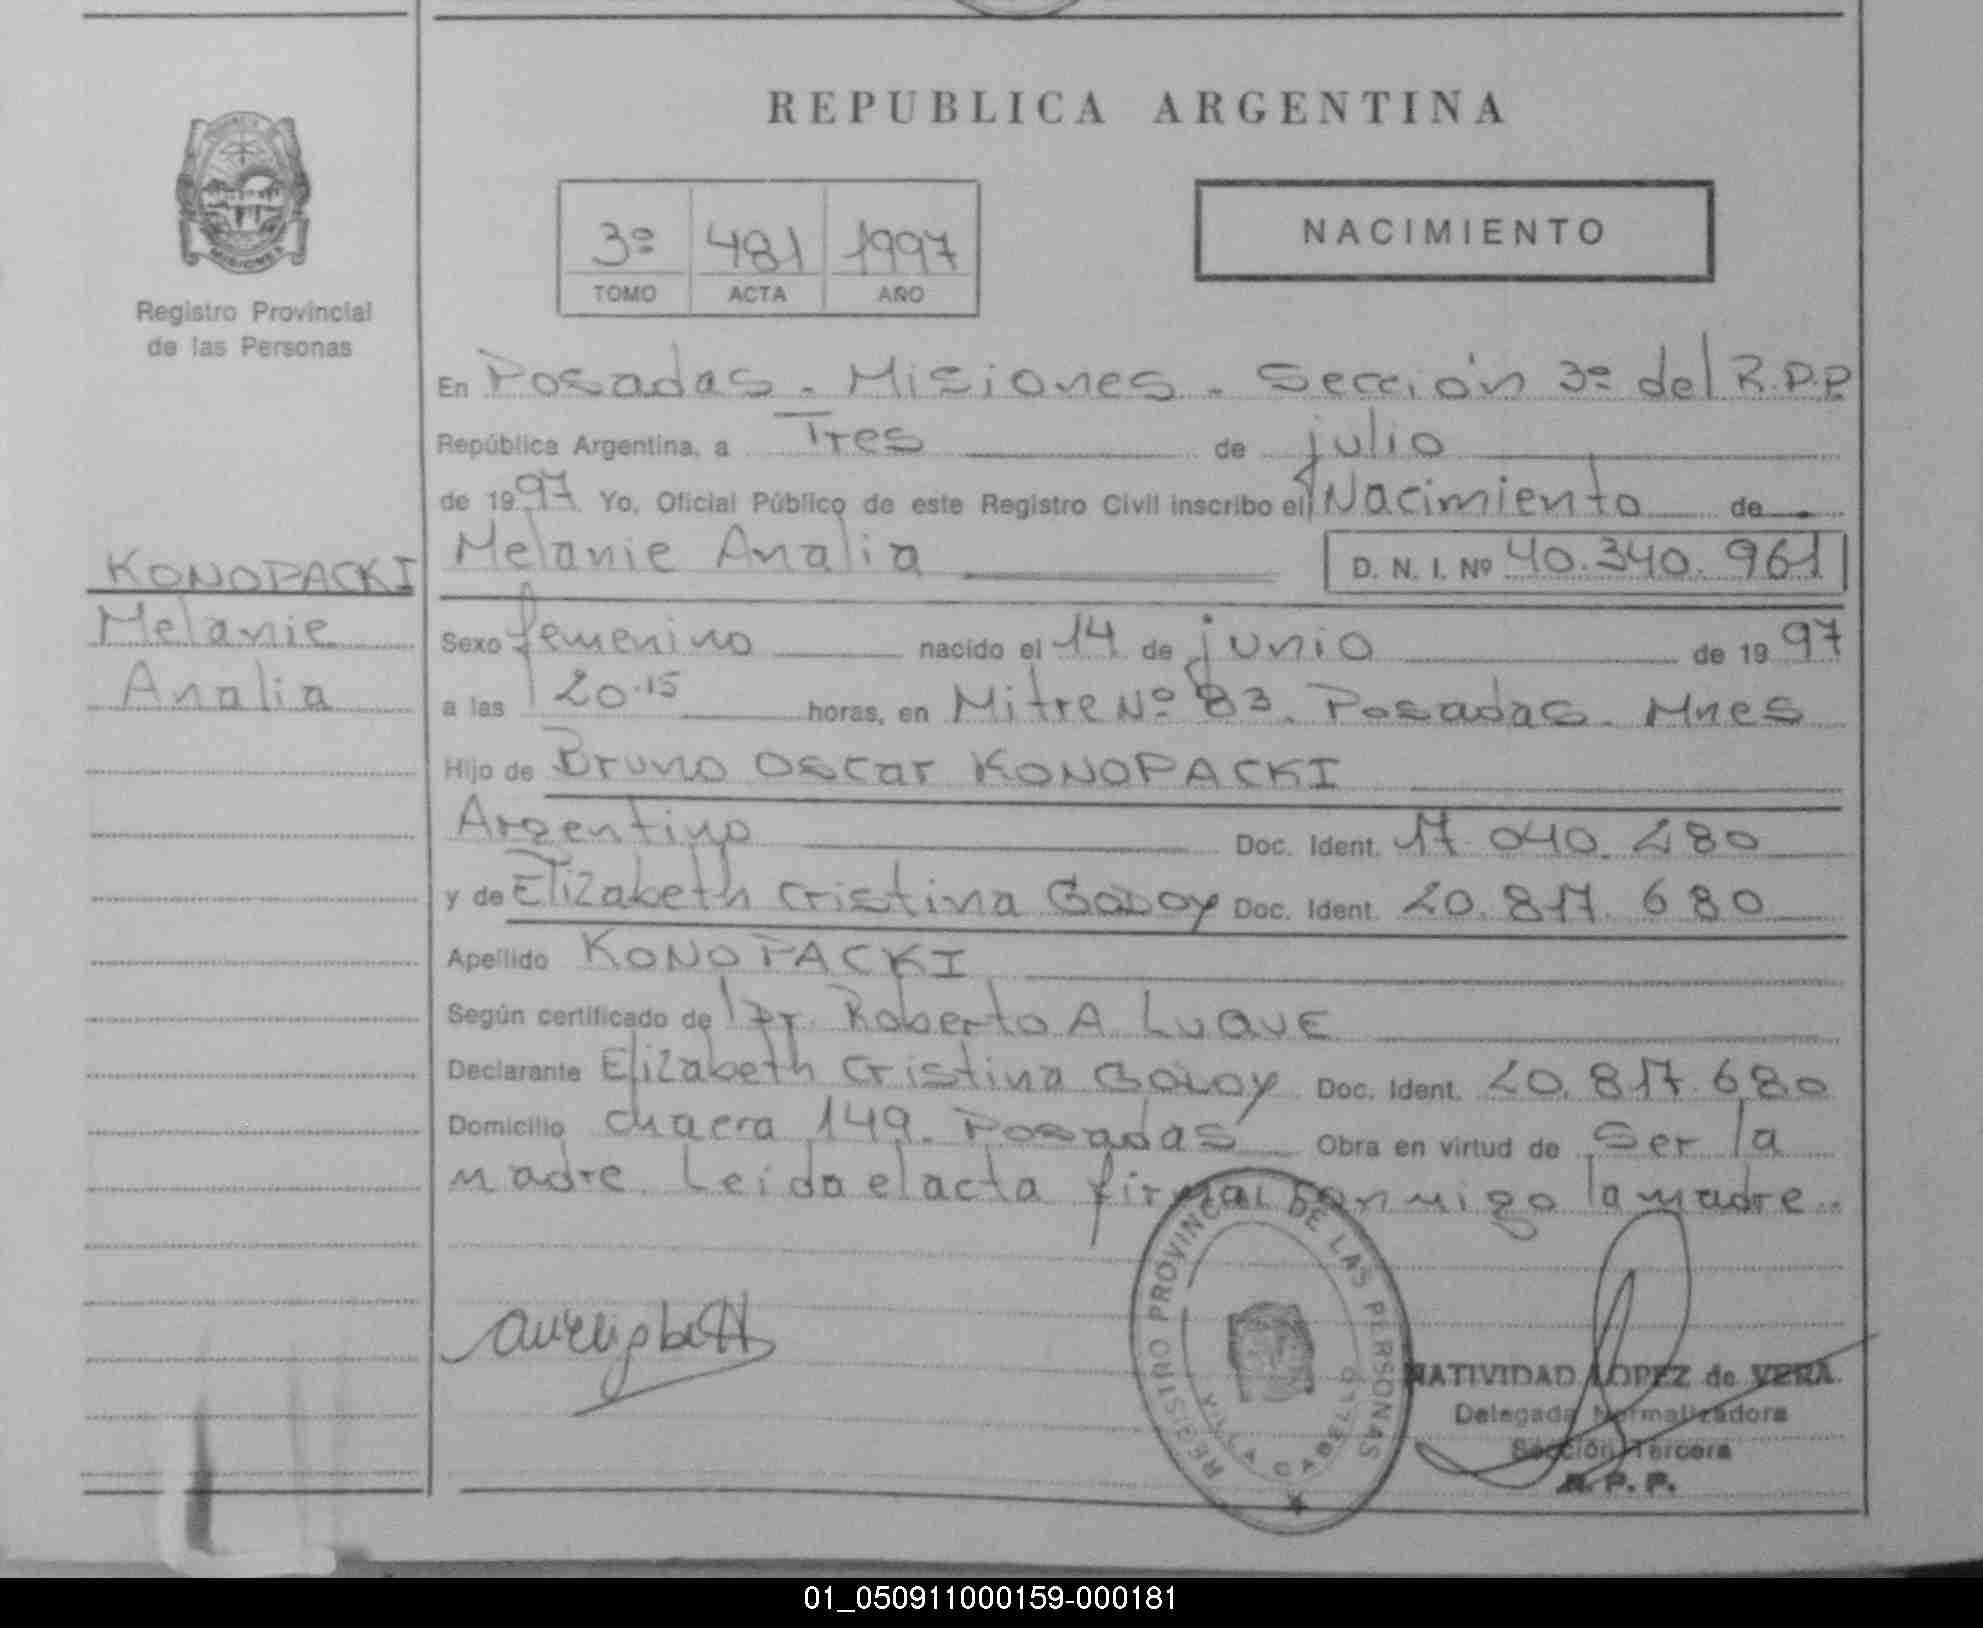 REPUBLICA ARGENTINA
MISIONES
Registro Provincial
de las Personas
3º 481 1997
TOMO ACTA AÑO
NACIMIENTO
En Posadas - Misiones - Sección 3º del R.P.P
República Argentina, a Tres de julio
de 1997 Yo, Oficial Público de este Registro Civil inscribo el Nacimiento de
KONOPACKI
Melanie
Analia
Melanie Analia D. N. I. Nº 40.340.961
Sexo femenino nacido el 14 de junio de 1997
a las 20.15 horas, en Mitre Nº 83. Posadas - Mnes
Hijo de Bruno Oscar KONOPACKI
Argentino Doc. Ident. 17.040.280
y de Elizabeth Cristina Godoy Doc. Ident. 20.817.680
Apellido KONOPACKI
Según certificado de Dr. Roberto A LUQUE
Declarante Elizabeth Cristina Godoy Doc. Ident. 20.817.680
Domicilio chacra 149. Posadas Obra en virtud de ser la
madre. Leída el acta firma conmigo la madre..
REGISTRO PROVINCIAL DE LAS PERSONAS
VILLA CABELLO
NATIVIDAD LOPEZ de VERA
Delegada Normalizadora
Sección Tercera
R. P. P.
01_050911000159-000181